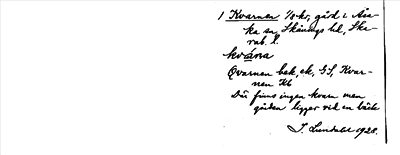 1 Kvarnen 1/8 kr, gård i Åsa-
ka sn, Skånings hd, Ska-
rab. l.
kvá̄ṇa
Qvarnen bek, ek, GS, Kvar-
nen Kb
Där finns ingen kvarn men
gården ligger vid en bäck
J. Lundahl 1928.